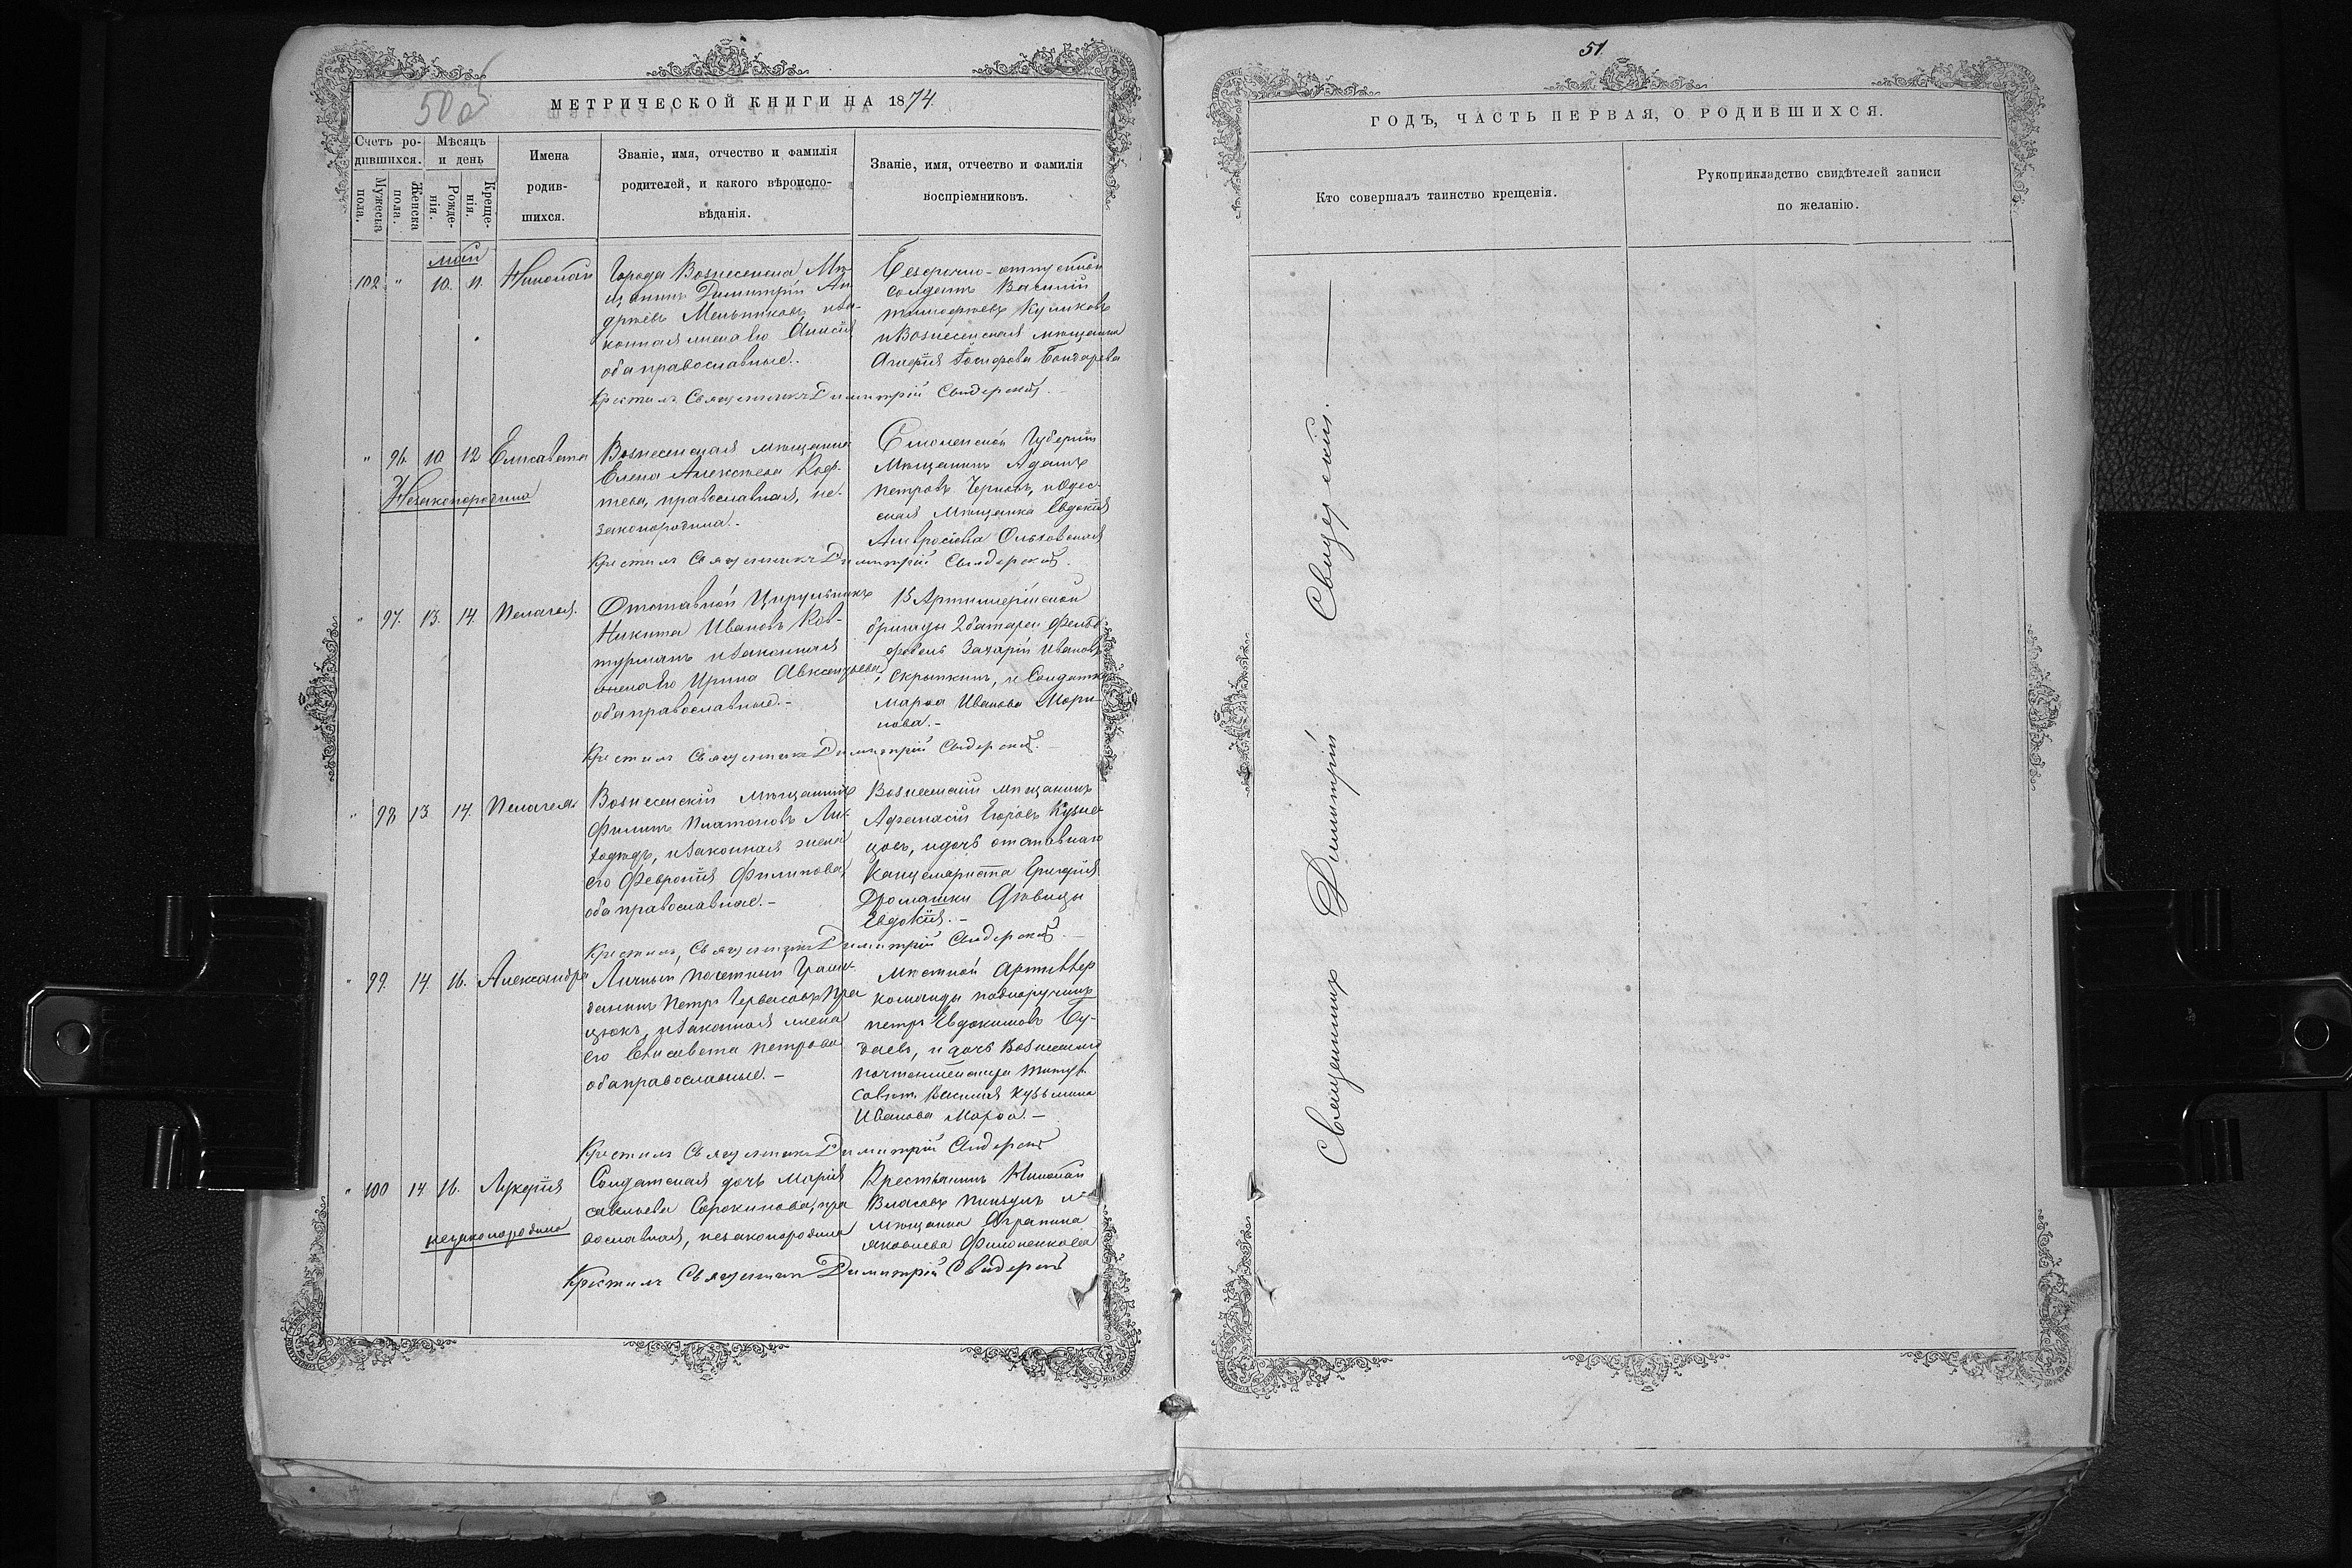 50 об
МЕТРИЧЕСКОЙ КНИГИ НА 1874.
Счетъ ро-
дившихся.
Мѣсяцъ
и день
Мужеска
пола.
Женска
пола.
Рожде-
нія.
Креще-
нія.
Имена
родив-
шихся.
Званіе, имя, отчество и фамилія
родителей, и какого вѣроиспо-
вѣданія.
Званіе, имя, отчество и фамилія
воспріемниковъ.
май
102 " 10. 11. Николай
Города Вознесенска Мѣ-
щанинъ Димитрій Ан-
дреевъ Мельниковъ и за-
конная жена его Анисія
оба православные.
Безсрочно-отпускной
солдатъ Василій
Тимофеевъ Куликовъ
и Вознесенская мѣщанка
Агафія Іосифова Гончарева
Крестилъ Священникъ Димитрій Свидерскій.
" 96. 10 12 Елисавета
Незаконорожд
Вознесенская мѣщанка
Елена Алексѣева
православная, не-
законорождена.
Смоленской Губерніи
Мѣщанинъ Адамъ
Петровъ Черновъ, и Одес-
ская Мѣщанка Евдокія
Амвросіева Ольховская
Крестилъ Священникъ Димитрій Свидерскій.
" 97. 13. 14. Пелагея.
Отставной Цирульникъ
Никита Ивановъ Ков-
турманъ и законная
жена его Ирина Авксентьева,
оба православные.-
15 Артиллерійской
бригады 2 батареи Фельд-
фебель Захарій Ивановъ
Скрыпкинъ, и Солдатка
Марѳа Иванова Мари-
нова.-
Крестилъ Священникъ Димитрій Свидерскій.
" 98 13 14. Пелагея
Вознесенскій мѣщанинъ
Филипъ Платоновъ Ли-
ходѣдъ, и законная жена
его Февронія Филипова,
оба православные.-
Вознесенскій мѣщанинъ
Афанасій Егоровъ Кузне-
цовъ, и дочь отставнаго
Канцеляриста Григорія
Дромашки Дѣвица
Евдокія.-
Крестилъ, Священникъ Димитрій Свидерскій.
" 99. 14. 16. Александра
Личный почетный Граж-
данинъ Петръ Гервасовъ
и законная жена
его Елисавета Петрова
оба православные.-
Мѣстной Артиллер
команды подпоручикъ
Петръ Евдокимовъ Бу-
даевъ, и дочь Вознесенскаго
почтмейстера Титул.
Совѣт. Василія Кузьмина
Иванова Марѳа.-
Крестилъ Священникъ Димитрій Свидерскій
" 100 14 16. Лукерія
незаконорождена
Солдатская дочь Марія
Савельева Сорокинова, пра
вославная, незаконорождена
Крестьянинъ Николай
Власовъ и
мѣщанка Агрипина
Яковлева Филоненкова
Крестилъ Священникъ Димитрій Свидерскій
51.
ГОДЪ, ЧАСТЬ ПЕРВАЯ, О РОДИВШИХСЯ.
Кто совершалъ таинство крещенія.
Рукоприкладство свидѣтелей записи
по желанію.
Священникъ Димитрій Свидерскій.